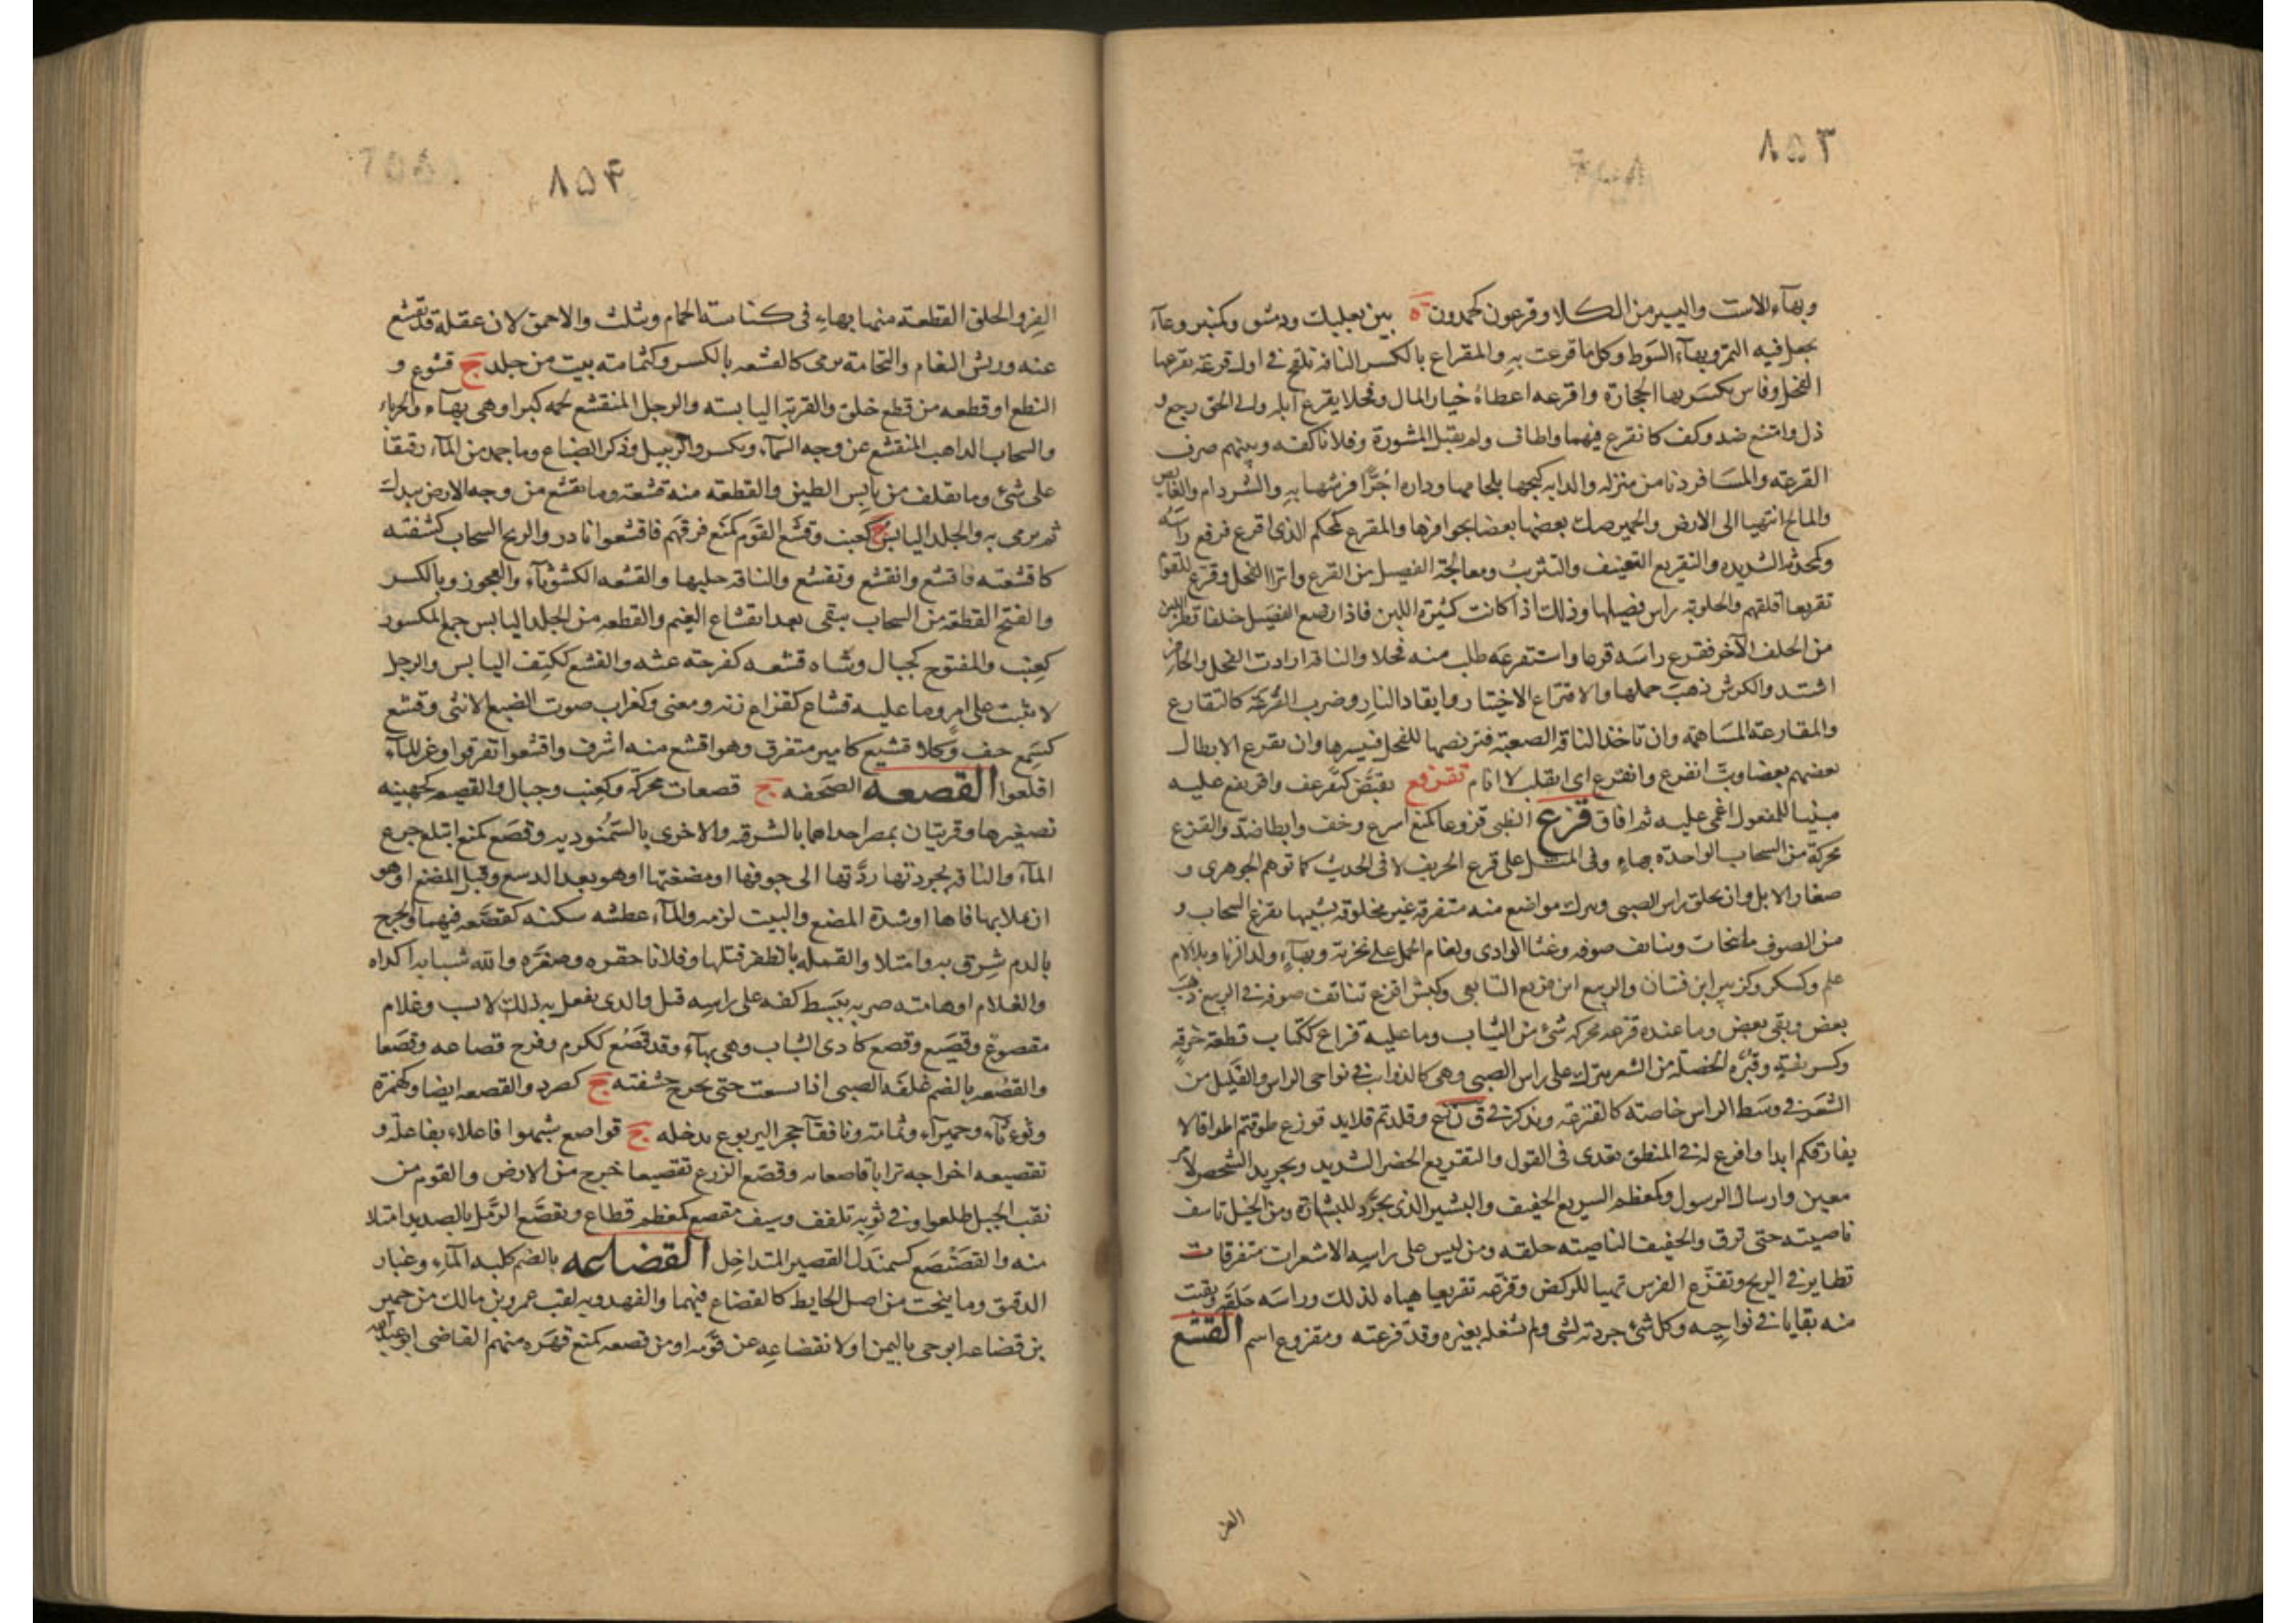 ٨٥٣
وبهاء الاست واليسير من الكلا وقرعون كحمدون ة بين بعلبك ودمشق وكتبر وعاء
يجعل فيه التمر وبهاء السوط وكل ما قرعت به والمقراع بالكسر الناقة تلقح في اول قرعة يقرعها
الفحل وفاس يكسر بها الحجارة واقرعه اعطاه خيار المال وفحلا يقرع ابله والى الحق رجع و
ذل وامتنع ضد وكف كانقرع فيهما واطاق ولم يقبل المشورة وفلانا كفه وبينهم صرف
القرعة والمسافر دنا من منزله والدابه كبحها بلجامها وداره اجرا فرشها به والشر دام والغايص
والمايح انتهيا الى الارض والحمير صك بعضها بعضا بحوافرها والمقرع كمحكم الذى اقرع فرفع راسه
وكمحدثه الشديده والتقريع التعنيف والتثريب ومعالجة الفصيل من القرع وانزاا الفحل وقرع للقوم
تقريعا اقلقهم والحلوبة راس فصيلها وذلك اذا كانت كثيرة اللبن فاذا رضع الفصيل خلفا قطر اللبن
من الخلف الآخر فقرع راسه قرعا واستقرعه طلب منه فحلا والناقة ارادت الفحل والحافر
اشتد والكرش ذهب حملها والاقتراع الاختيار وايقاد النار وضرب القرعة كالتقارع
والمقارعة المساهمة وان تاخذ الناقة الصعبة فتربضها للفحل فيبسرها وان يقرع الابطال
بعضهم بعضا وبت اتقرع وانقرع اى اتقلب لا انام تقرفع تقبض كتقرعف واقرنفع عليه
مبنيا للمفعول اغمى عليه ثم افاق قزع الظبى قزوعا كمنع اسرع وخف وابطا ضد والقزع
محركة من السحاب الواحدة بهاء وفى المثل على قزع الخريف لا فى الحديث كما توهم الجوهرى و
صغار الابل وان يحلق راس الصبى ويترك مواضع منه متفرقة غير محلوقة تشبيها بقزع السحاب و
من الصوف ما تحات وتناتف صوفه وغثا الوادى ولغام الجمل على نخرته وبهاء ولد الزنا وبلا لام
علم وكسكر وكزبير ابن فتيان والربيع ابن قزيع التابعى وكبش اقزع تناتفت صوفه فى الربيع ذهب
بعض وبقى بعض وما عنده قزعة محركه شئ من الثياب وما عليه قزاع ككتاب قطعة خرقة
وكسريفة وقبرة الخصلة من الشعر تترك على راس الصبى وهى كالذوايب فى نواحى الراس والقليل من
الشعر فى وسط الراس خاصة كالقنزعة ويذكر فى ق ن ز ع وقلدتم قلايد قوزع طوقتم اطواقا لا
يفارقكم ابدا واقزع له فى المنطق تعدى فى القول والتقزيع الحضر الشديد وتجريد الشخص لامر
معين وارسال الرسول وكمعظم السريع الخفيف والبشير الذى يجرد للبشارة ومن الخيل تاتف
ناصيته حتى ترق والخفيف الناصيه خلقه ومن ليس على راسه الا شعرات متفرقات
تطاير فى الريح وتقزع الفرس تهيا للركض وقزعه تقزيعا هياه لذلك وراسه حلقه وبقيت
منه بقايا فى نواحيه وكل شئ جردته لشى ولم تشغله بغيره وقد قزعته ومقزوع اسم القشع
الفر
٨٥٤
الفرو الخلق القطعة منهما بهاء فى كناسة الحمام ويثلث والاحمق لان عقله قد تقشع
عنه وريش النعام والنخامة يرمى كالقشعه بالكسر وكثمامته بيت من جلد ج قشوع و
النطع او قطعه من قطع خلق والقربة اليابسة والرجل المنقشع لحمه كبرا وهى بهاء والحرباء
والسحاب الذاهب المنقشع عن وجه السماء ويكسر والزبيل وذكر الضباع وما جمد من الماء رقيقا
على شئ وما تقلف من يابس الطين والقطعة منه قشعة وما تقشع من وجه الارض بيدك
ثم ترمى به والجلد اليابس ج كعنب وقشع القوم كمنع فرقهم فاقشعوا نادر والريح السحاب كشفته
كاقشعته فاقشع وانقشع وتقشع والناقة حلبها والقشعه الكشوثاء والعجوز وبالكسر
والفتح القطعة من السحاب يبقى بعد انقشاع الغيم والقطعه من الجلد اليابس جمع المكسور
كعنب والمفتوح كجبال وشاه قشعه كفرحة غثه والقشع ككتف اليابس والرجل
لا يثبت على امر وما عليه قشاع كقزاع زنه ومعنى وكغراب صوت الضبع الانثى وقشع
كسمع جف وكلا قشيع كامير متفرق وهو اقشع منه اشرف واقشعوا تفرقوا وعن الماء
اقلعوا القصعه الصحفه ج قصعات محركة وكعنب وجبال والقصيعه كجهينه
تصغيرها وقريتان بمصر احداهما بالشرقيه والاخرى بالسمنوديه وقصع كمنع ابتلع جرع
الماء والناقة بجرتها ردتها الى جوفها او مضغتها او هو بعد الدسع وقبل المضغ او هو
ان تملا بها فاها او شدة المضغ والبيت لزمه والماء عطشه سكنه كقصعه فيهما والجرح
بالدم شرق به وامتلا والقمله بالظفر قتلها وفلانا حقره وصغره والله شبابه اكداه
والغلام او هامته ضربه ببسط كفه على راسه قيل والذى يفعل به ذلك لا يشب وغلام
مقصوع وقصيع وقصع كادى الشباب وهى بهاء وقد قصع ككرم وفرح قصاعه وقصعا
والقصعه بالضم غلفة الصبى اذا اتسعت حتى يخرج حشفته ج كصرد والقصعه ايضا وكهمزة
وتوءباء وحميراء وثمانة ونافقاء جحر اليربوع يدخله ج قواصع شبهوا فاعلاء بفاعلة و
تقصيعه اخراجه تراب قاصعائه وقصع الزرع تقصيعا خرج من الارض والقوم من
نقب الجبل طلعوا وفى ثوبه تلفف وسيف مقصع كمعظم قطاع وتقصع الدمل بالصديد امتلا
منه والقصنصع كسمندل القصير المتداخل القضاعه بالضم كلبه الماء وغبار
الدقيق وما ينحت من اصل الحايط كالقضاع فيهما والفهد وبه لقب عمرو بن مالك من حمير
بن قضاعه ابو حى باليمن او لانقضاعه عن قومه او من قضعه كمنع قهره منهم القاضى ابو عبد الله